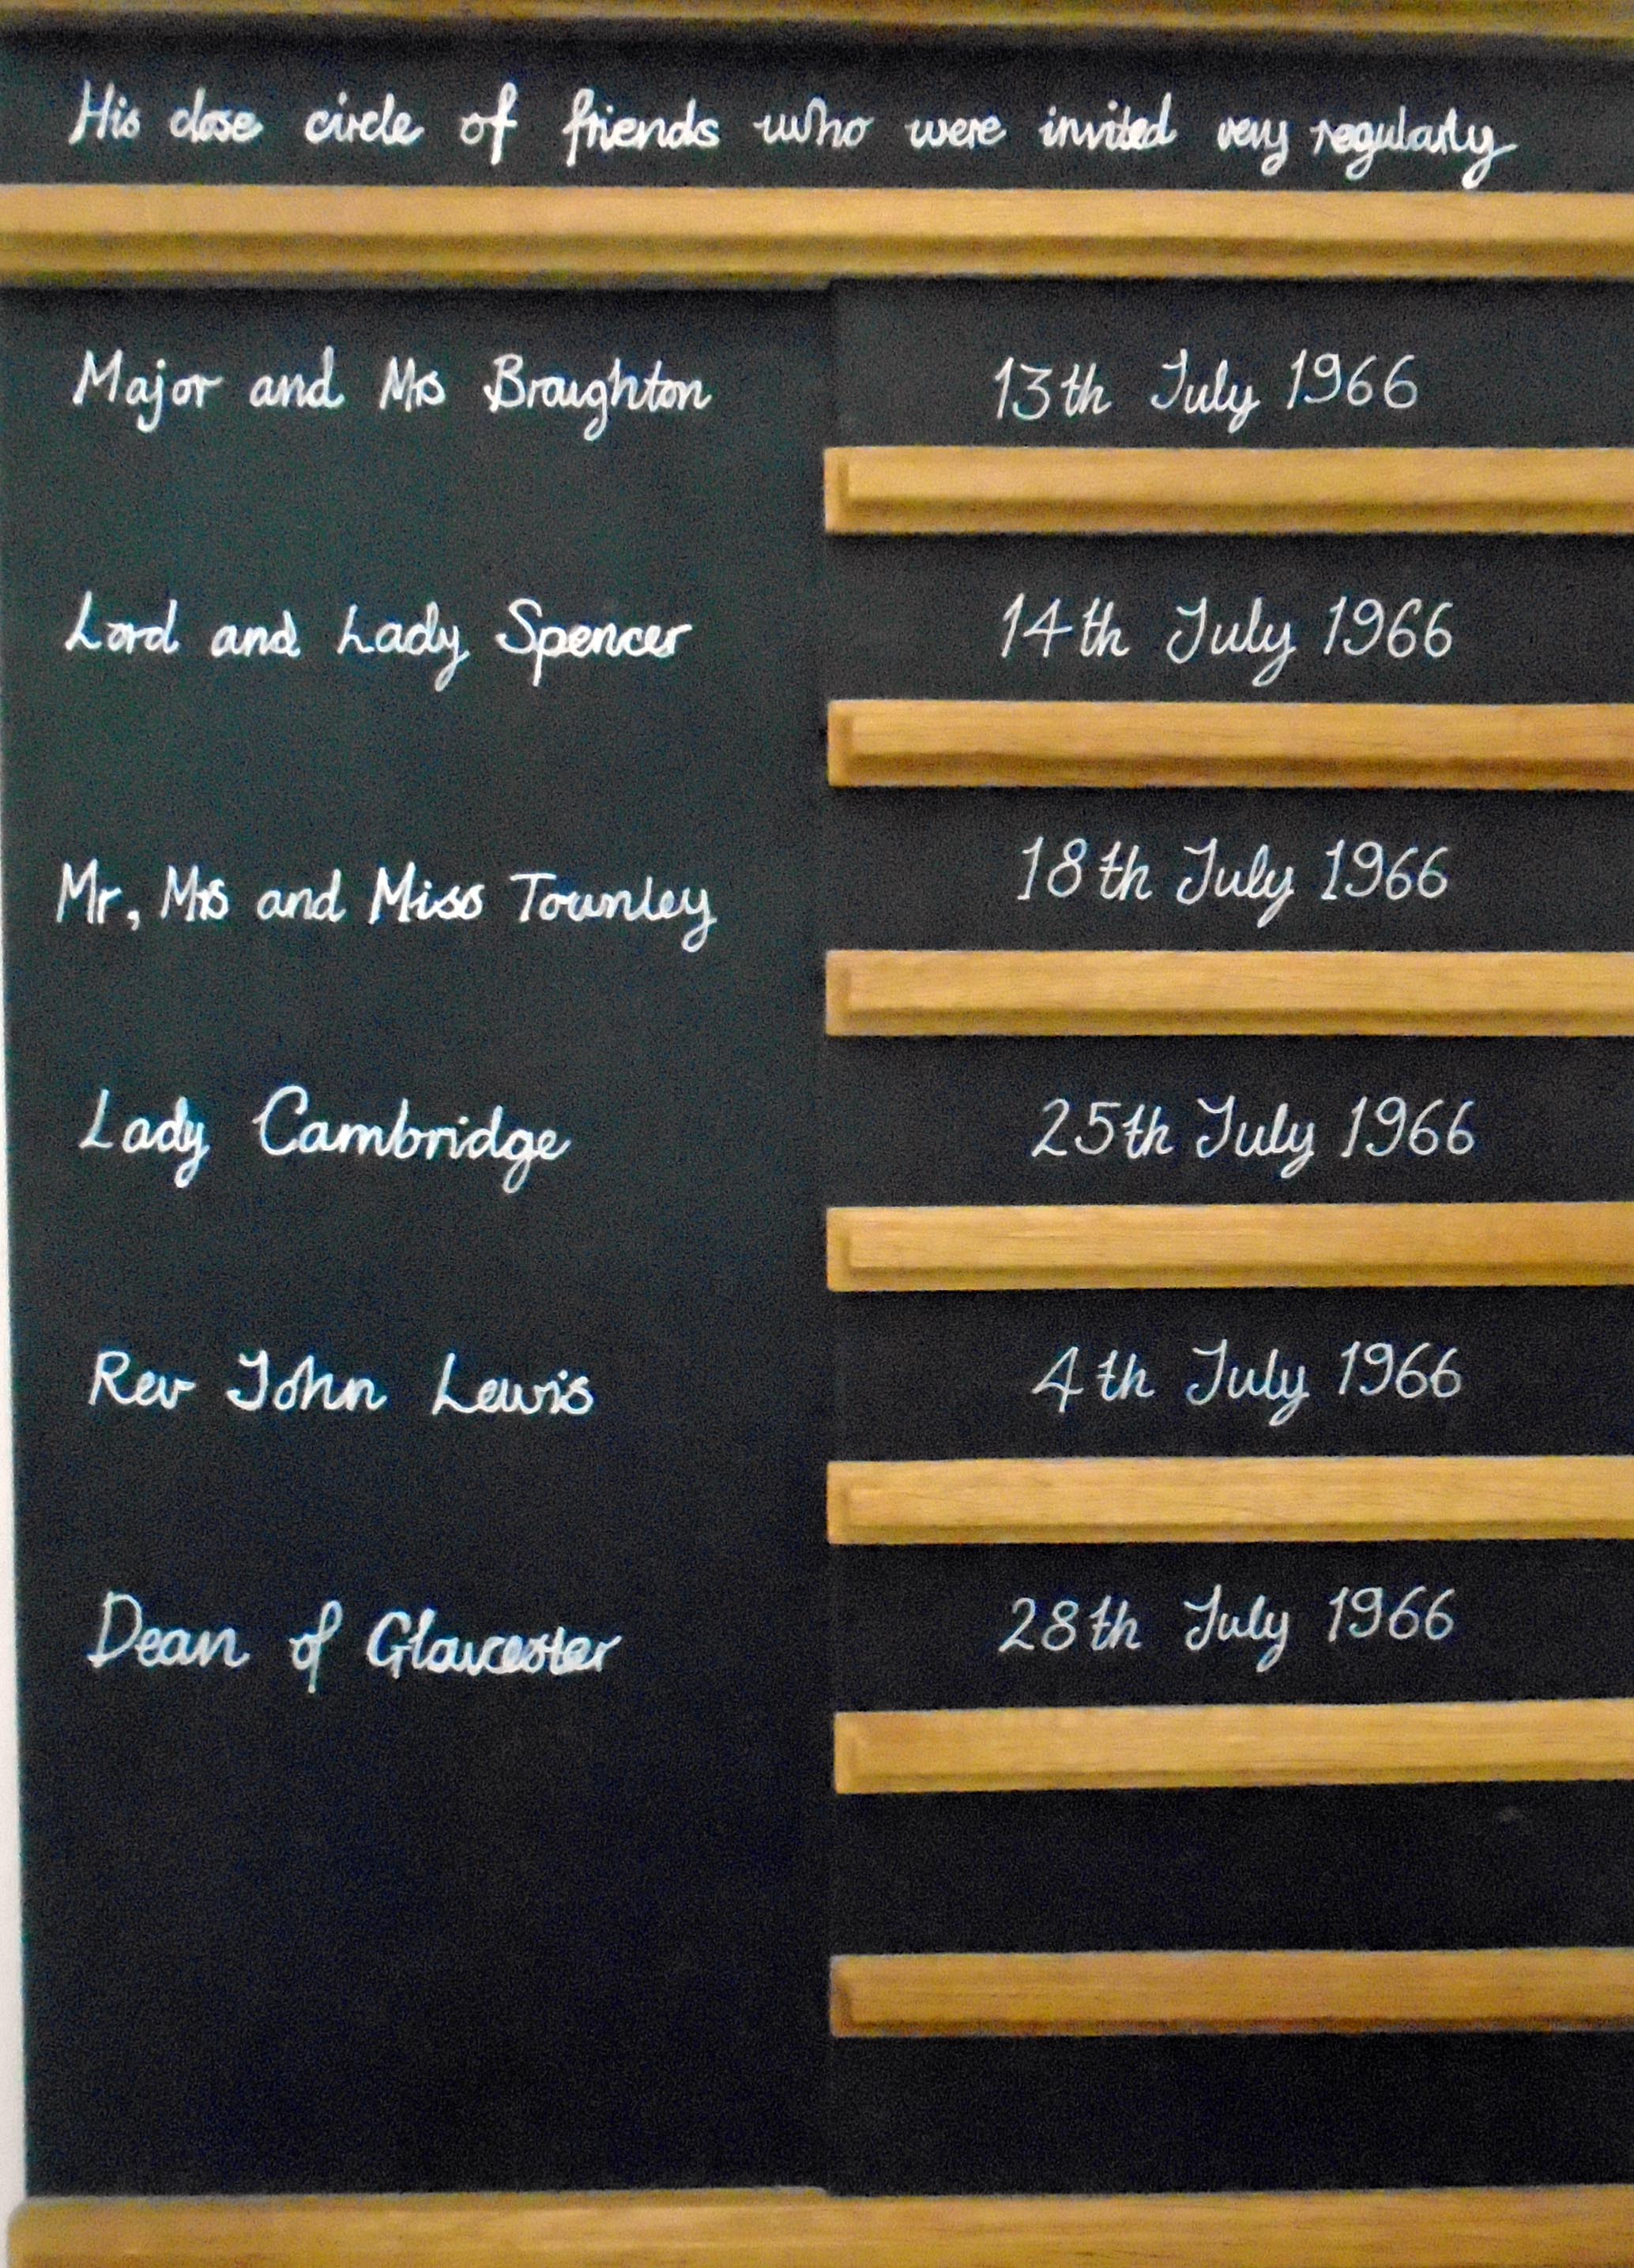 His close circle of friends who were invited very regularly
Major and Mrs Braughton 13th July 1966
Lord and Lady Spencer 14th July 1966
Mr, Mrs and Miss Townley 18th July 1966
Lady Cambridge 25th July 1966
Rev John Lewis 4th July 1966
Dean of Gloucester 28th July 1966